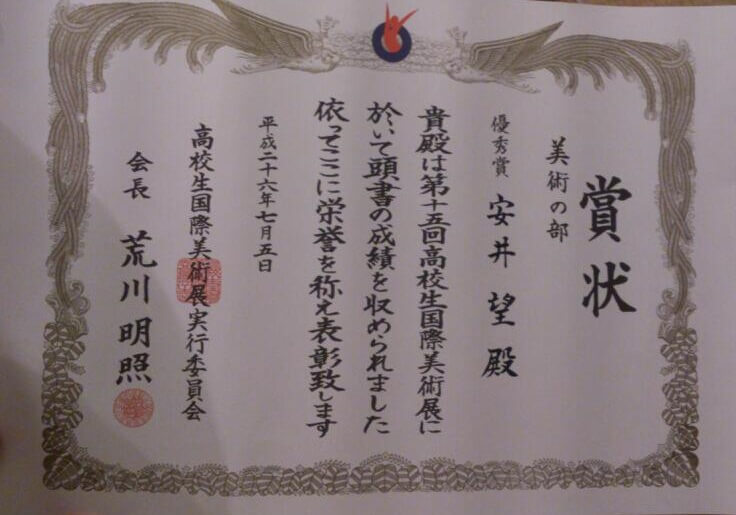 賞状
美術の部
優秀賞 安井 望 殿
貴殿は第十五回高校生国際美術展に
於いて頭書の成績を収められました
依ってここに栄誉を称え表彰致します
平成二十六年七月五日
高校生国際美術展実行委員会
会長 荒川明照